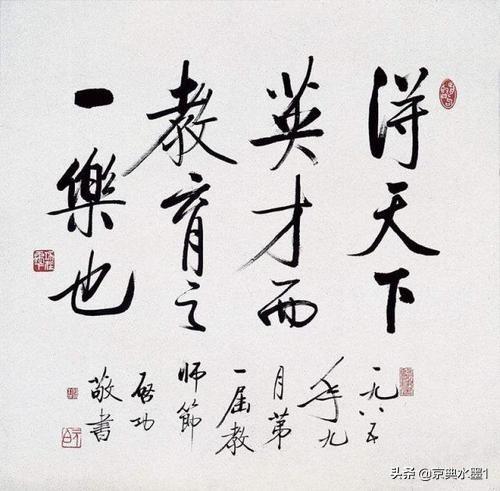 得天下
英才而
教育之
一樂也
一九八五
年九
月第
一届教
师節
启功
敬書
头条 @京典水墨1